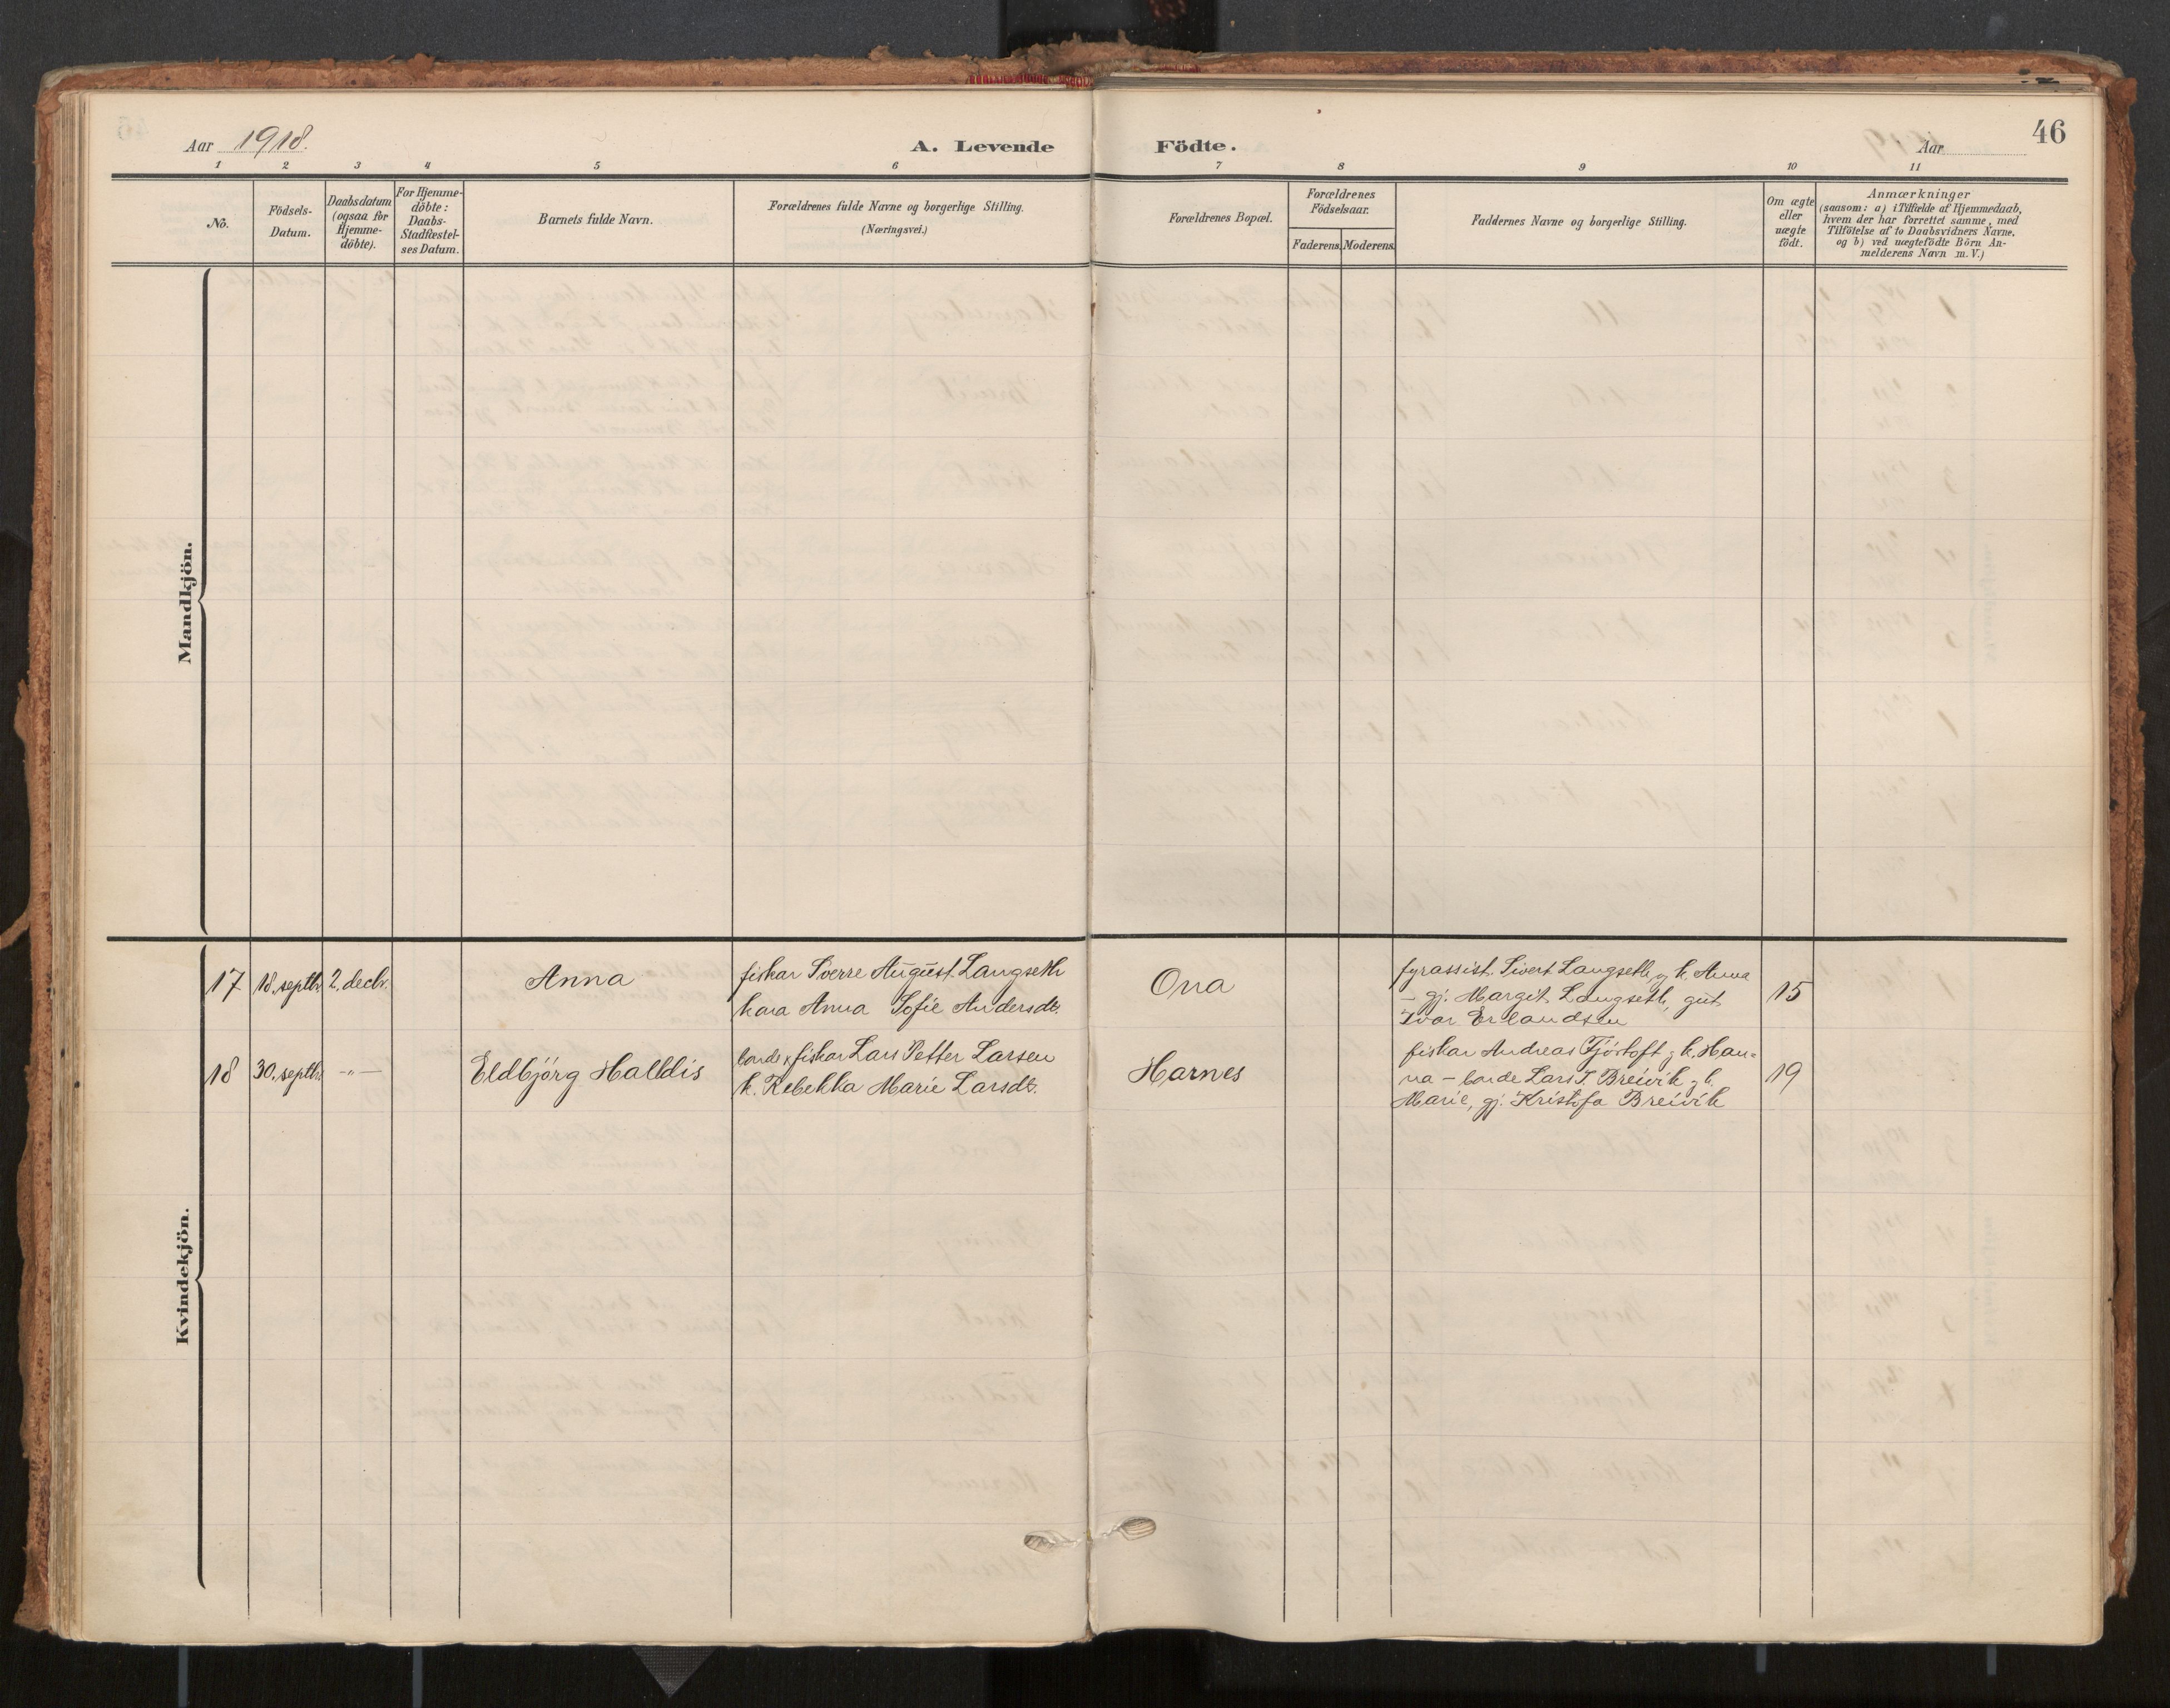 46
Aar 1918.
A. Levende Födte.
Aar
1 2 3 4 5 6 7 8 9 10 11
No.
Födsels-
Datum.
Daabsdatum
(ogsaa for
Hjemme-
döbte).
For Hjemme-
döbte:
Daabs-
Stadfæstel-
ses Datum.
Barnets fulde Navn.
Forældrenes fulde Navne og borgerlige Stilling.
(Næringsvei.)
Forældrenes Bopæl.
Forældrenes
Födselsaar.
Faderens. Moderens.
Faddernes Navne og borgerlige Stilling.
Om ægte
eller
uægte
födt.
Anmærkninger
(saasom: a) i Tilfælde af Hjemmedaab,
hvem der har forrettet samme, med
Tilföielse af to Daabsvidners Navne,
og b) ved uægtefödte Börn An-
melderens Navn m. V.)
Mandkjön.
Kvindekjön.
17 18. septbr. 2. decbr.
Anna
fiskar Sverre August Langseth
kona Anna Sofie Andersdt.
Ona
fyrassist. Sivert Langseth og k. Anna
– gj. Margit Langseth, gut
Ivar Erlandsen
15
18 30. septbr. -"-
Eldbjörg Halldis
bonde & fiskar Lars Petter Larsen
k. Rebekka Marie Larsdt.
Harnes
fiskar Andreas Fjörtoft og k. Han-
na – bonde Lars T. Breivik og k.
Marie, gj. Kristofa Breivik
19